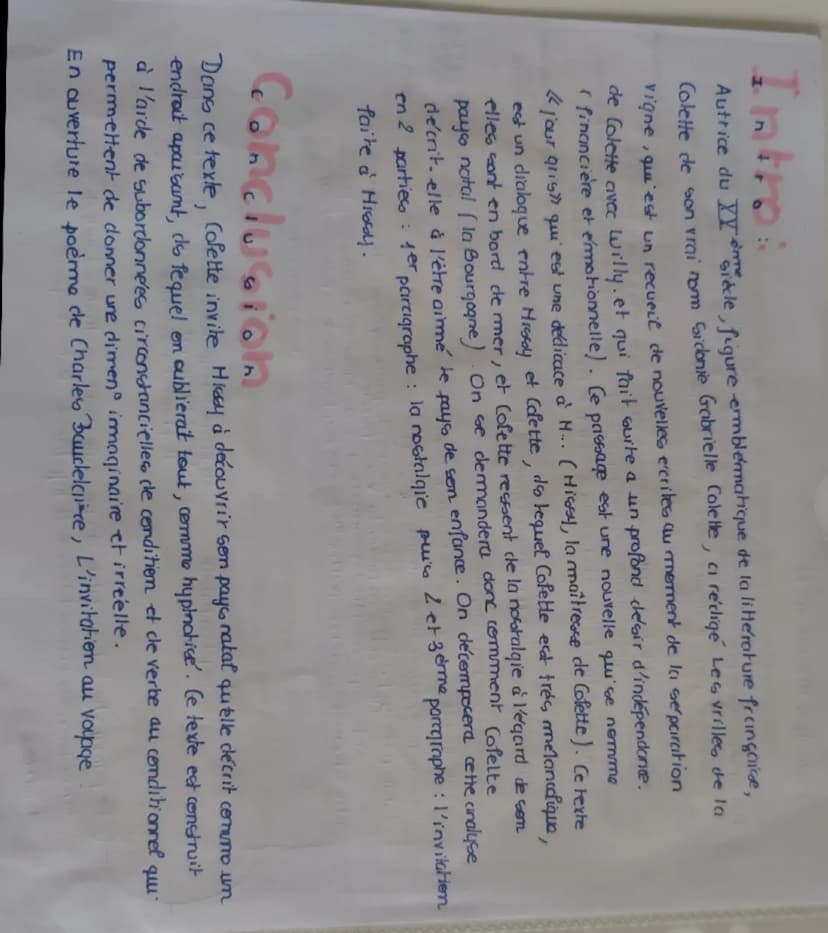 Intro:
Intro:
Autrice du XXème siècle, figure emblématique de la littérature française,
Colette de son vrai nom Sidonie Gabrielle Colette, a rédigé Les vrilles de la
vigne, qui est un recueil de nouvelles écrites au moment de la séparation
de Colette avec Willy. et qui fait suite a un profond désir d'indépendance.
(financière et émotionnelle). Ce passage est une nouvelle qui se nomme
"jour gris" qui est une dédicace à M... (Missy, la maîtresse de Colette). Ce texte
est un dialogue entre Missy et Colette, ds lequel Colette est très mélancolique,
elles sont en bord de mer, et Colette ressent de la nostalgie à l'égard de son
pays natal (la Bourgogne) On se demandera donc comment Colette
décrit-elle à l'être aimé le pays de son enfance. On décomposera cette analyse
en 2 parties: 1er paragraphe: la nostalgie puis 2 et 3ème paragraphe: l'invitation
faite à Missy.
Conclusion
Conclusion
Dans ce texte, Colette invite Missy à découvrir son pays natal qu'elle décrit comme un
endroit apaisant, ds lequel on oublierait tout, comme hypnotisé. Ce texte est construit
à l'aide de subordonnées circonstancielles de condition et de verbe au conditionnel qui
permettent de donner une dimen° imaginaire et irréelle.
En ouverture le poème de Charles Baudelaire, L'invitation au voyage